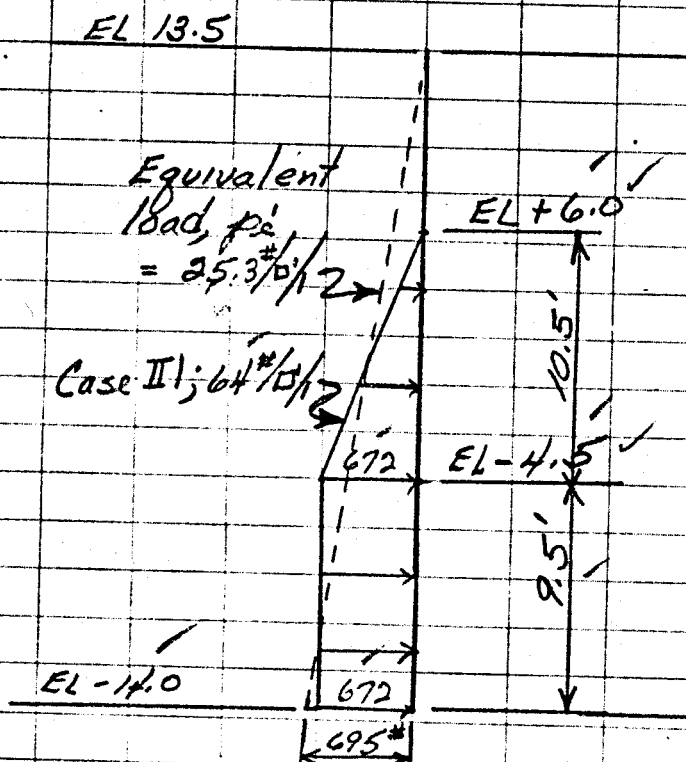 EL 13.5
Equivalent
load, pe
= 25.3#/□'/1
EL + 6.0
10.5'
Case III; 64#/□'/1
672
EL - 4.5
9.5'
EL - 14.0
672
695#